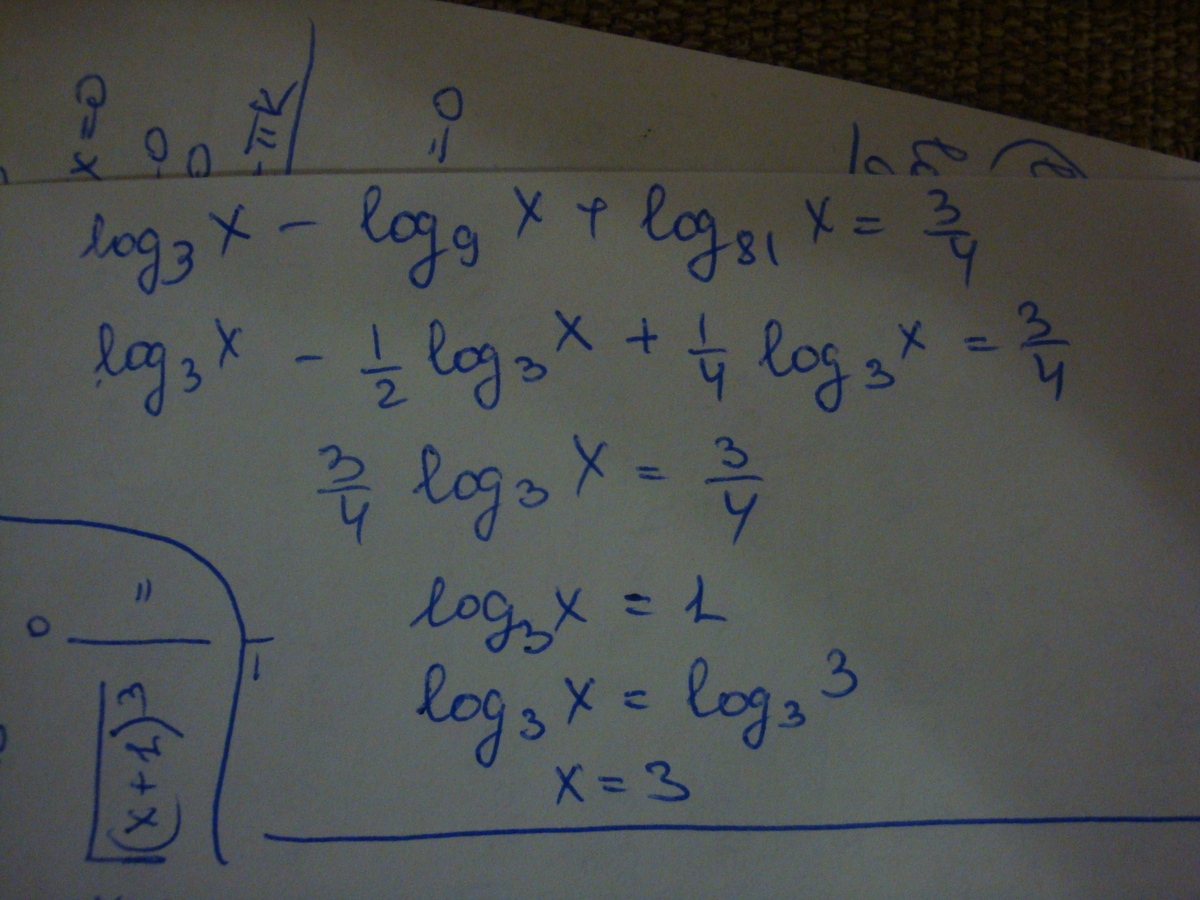 x=0
0
0
-πk
=0
log₃ x - log₉ x + log₈₁ x = 3/4
log₃ x - 1/2 log₃ x + 1/4 log₃ x = 3/4
3/4 log₃ x = 3/4
log₃ x = 1
log₃ x = log₃ 3
x = 3
(x+1)³